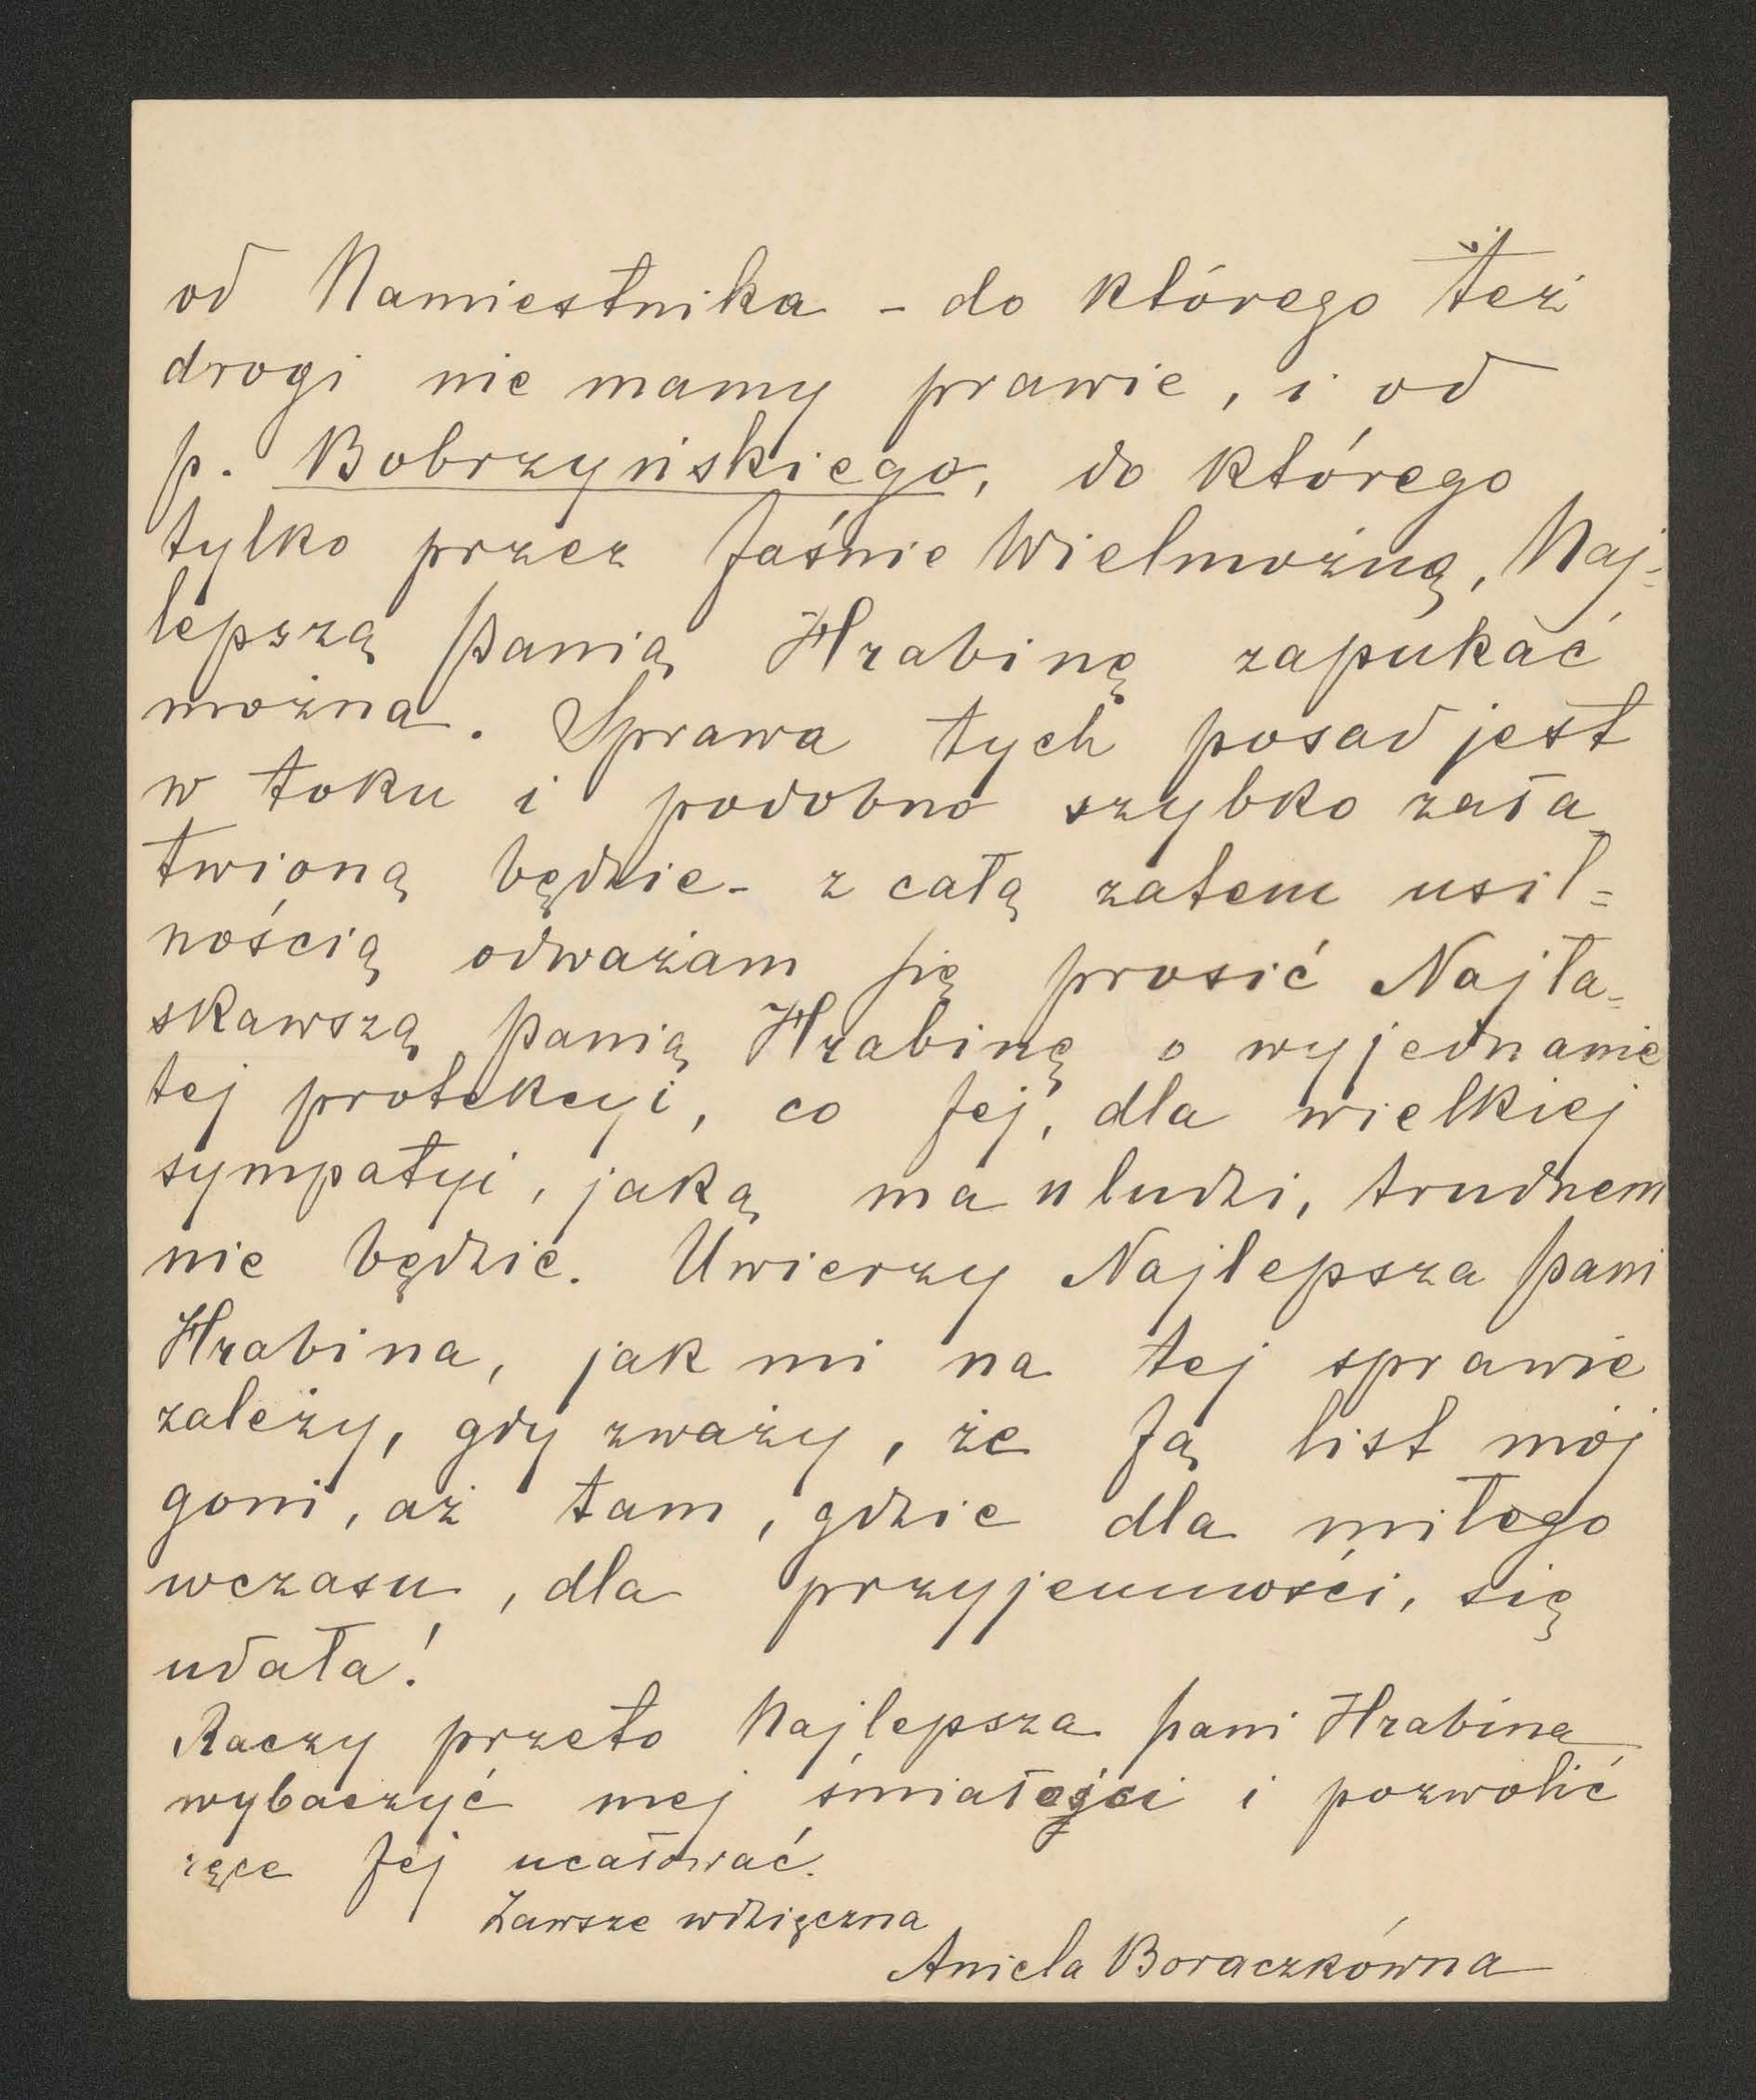 od Namiestnika - do którego też
drogi nie mamy prawie, i od
p. Bobrzyńskiego, do którego
tylko przez Jaśnie Wielmożną, Naj-
lepszą Panią Hrabinę zapukać
można. Sprawa tych posad jest
w toku i podobno szybko zała
twioną będzie - z całą zatem usil=
nością odważam się prosić Najła=
skawszą Panią Hrabinę o wyjednanie
tej protekcyi, co Jej, dla wielkiej
sympatyi, jaką ma u ludzi, trudnem
nie będzie. Uwierzy Najlepsza Pani
Hrabina, jak mi na tej sprawie
zależy, gdy zważy, że Ją list mój
goni, aż tam, gdzie dla miłego
wczasu, dla przyjemności, się
udała!
Raczy przeto Najlepsza Pani Hrabina
wybaczyć mej śmiałości i pozwolić
ręce Jej ucałować.
Zawsze wdzięczna
Aniela Boraczkówna